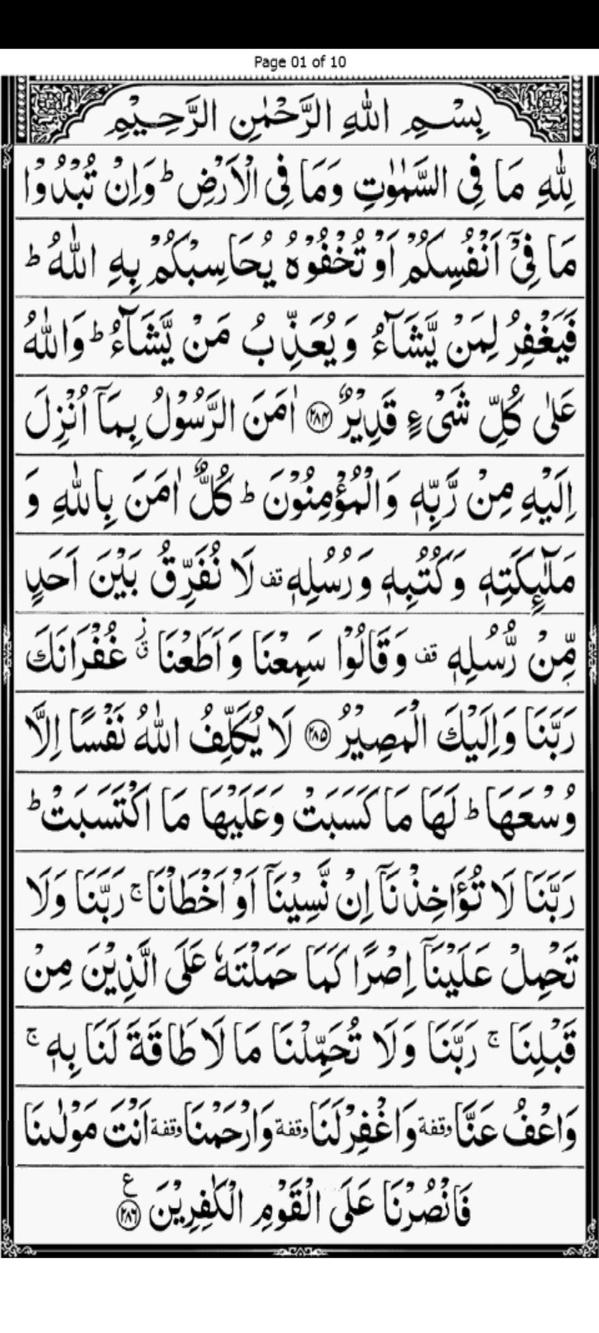 Page 01 of 10
بِسْمِ اللهِ الرَّحْمٰنِ الرَّحِيْمِ
لِلّٰهِ مَا فِى السَّمٰوٰتِ وَمَا فِى الْاَرْضِ ؕ وَاِنْ تُبْدُوْا
مَا فِىْۤ اَنْفُسِكُمْ اَوْ تُخْفُوْهُ يُحَاسِبْكُمْ بِهِ اللّٰهُ ؕ
فَيَغْفِرُ لِمَنْ يَّشَآءُ وَيُعَذِّبُ مَنْ يَّشَآءُ ؕ وَاللّٰهُ
عَلٰى كُلِّ شَىْءٍ قَدِيْرٌ ﴿۲۸۴﴾ اٰمَنَ الرَّسُوْلُ بِمَاۤ اُنْزِلَ
اِلَيْهِ مِنْ رَّبِّهٖ وَالْمُؤْمِنُوْنَ ؕ كُلٌّ اٰمَنَ بِاللّٰهِ وَ
مَلٰٓئِكَتِهٖ وَكُتُبِهٖ وَرُسُلِهٖ قف لَا نُفَرِّقُ بَيْنَ اَحَدٍ
مِّنْ رُّسُلِهٖ قف وَقَالُوْا سَمِعْنَا وَاَطَعْنَا ۫ غُفْرَانَكَ
رَبَّنَا وَاِلَيْكَ الْمَصِيْرُ ﴿۲۸۵﴾ لَا يُكَلِّفُ اللّٰهُ نَفْسًا اِلَّا
وُسْعَهَا ؕ لَهَا مَا كَسَبَتْ وَعَلَيْهَا مَا اكْتَسَبَتْ ؕ
رَبَّنَا لَا تُؤَاخِذْنَاۤ اِنْ نَّسِيْنَاۤ اَوْ اَخْطَاْنَا ۚ رَبَّنَا وَلَا
تَحْمِلْ عَلَيْنَاۤ اِصْرًا كَمَا حَمَلْتَهٗ عَلَى الَّذِيْنَ مِنْ
قَبْلِنَا ۚ رَبَّنَا وَلَا تُحَمِّلْنَا مَا لَا طَاقَةَ لَنَا بِهٖ ۚ
وَاعْفُ عَنَّا وقفة وَاغْفِرْ لَنَا وقفة وَارْحَمْنَا وقفة اَنْتَ مَوْلٰىنَا
فَانْصُرْنَا عَلَى الْقَوْمِ الْكٰفِرِيْنَ ﴿۲۸۶﴾ ع